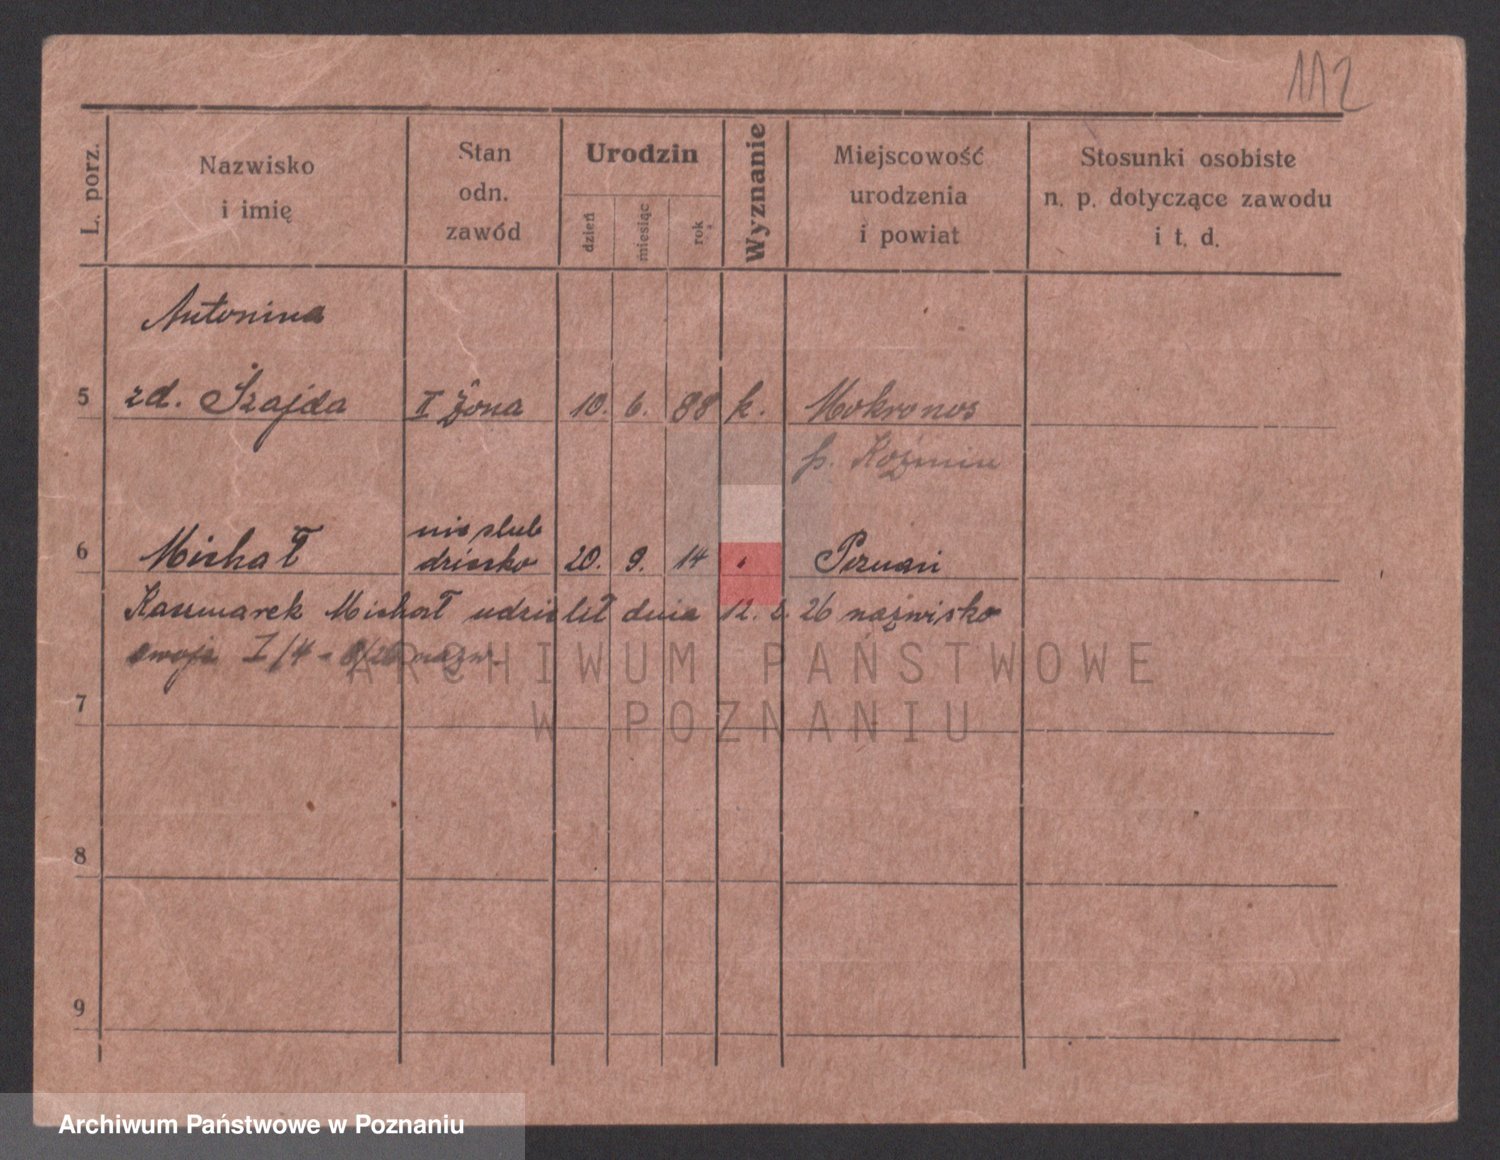 112
L. porz.
Nazwisko
i imię
Stan
odn.
zawód
Urodzin
dzień
miesiąc
rok
Wyznanie
Miejscowość
urodzenia
i powiat
Stosunki osobiste
n. p. dotyczące zawodu
i t. d.
Antonina
5 zd. Szajda II żona 10. 6. 88 k. Mokronos
p. Koźmin
nieślub
6 Michał dziecko 20. 9. 14 Poznań
Kaczmarek Michał udzielił dnia 12. 26 nazwisko
swoje I/4 - nazw.
7
8
9
ARCHIWUM PAŃSTWOWE
W POZNANIU
Archiwum Państwowe w Poznaniu